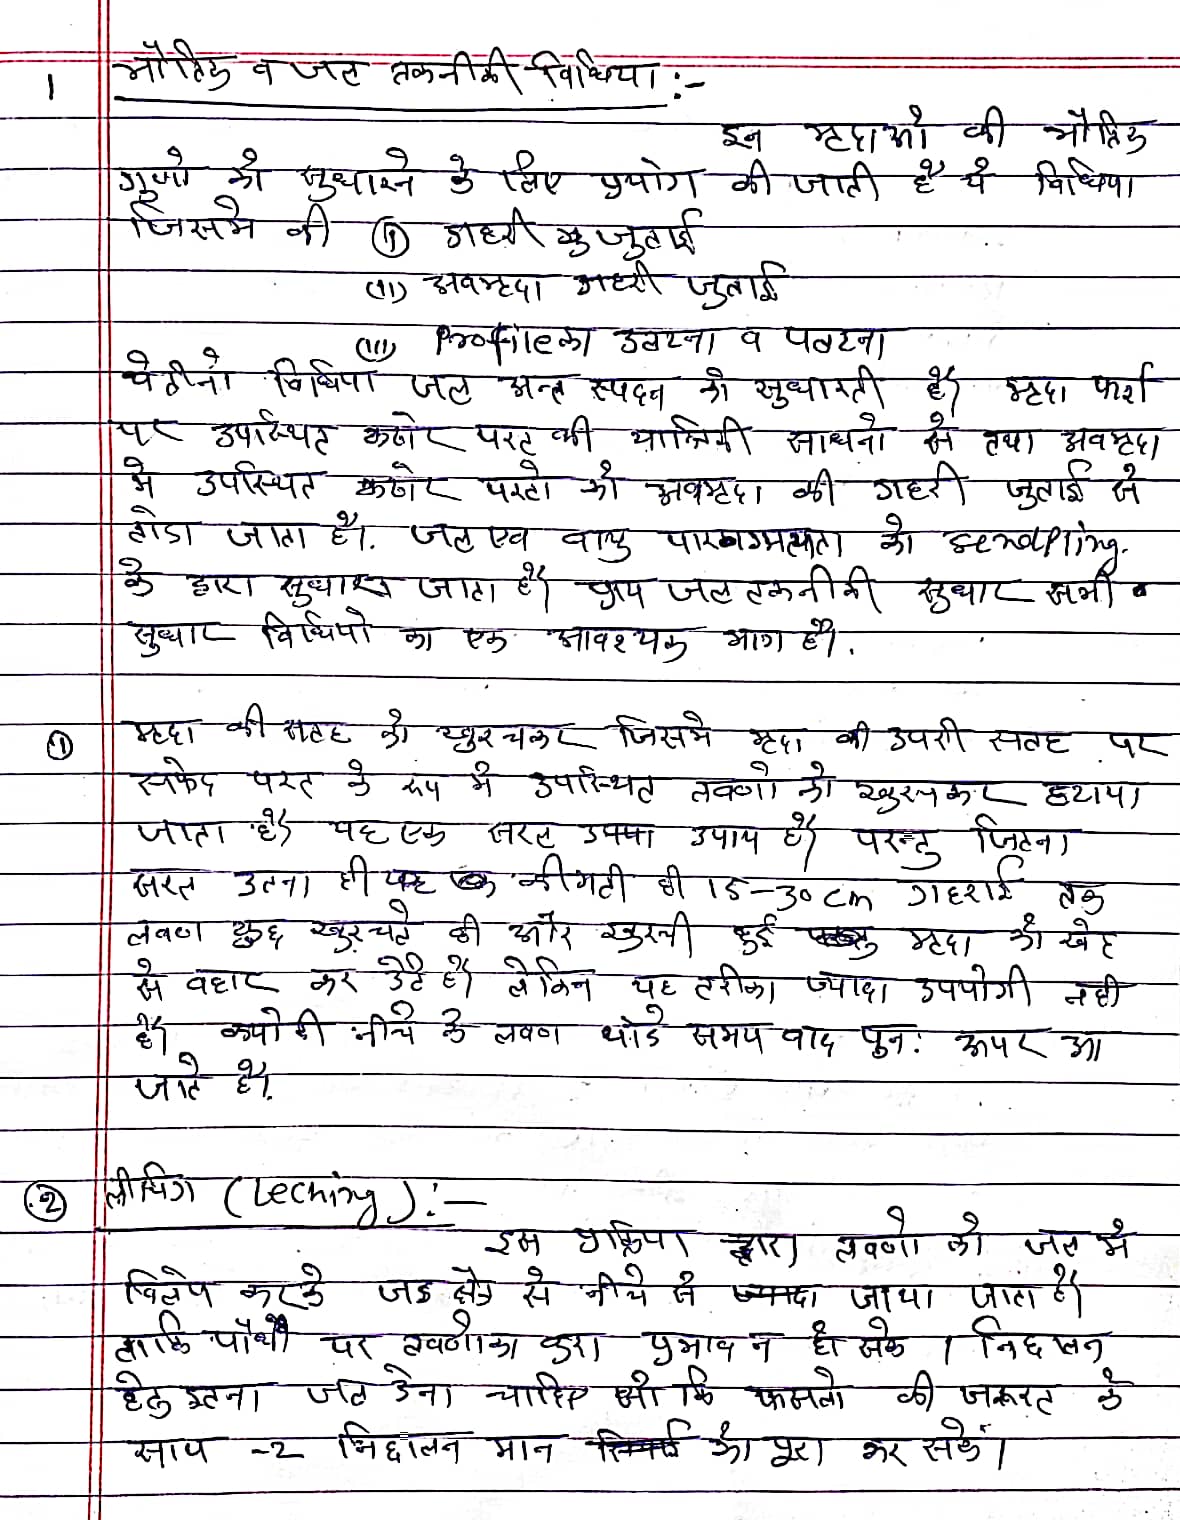 1 भौतिक व जल तकनीकी विधिया :-
इन मृदाओ की भौतिक
गुणो को सुधारने के लिए प्रयोग की जाती है ये विधिया
जिसमे की (i) गहरी जुताई
(ii) अवमृदा गहरी जुताई
(iii) Profile का उलटना व पलटना
ये तीनो विधिया जल अन्त स्पदन को सुधारती है। मृदा फर्श
पर उपस्थित कठोर परत को यान्त्रिकी साधनो से तथा अवमृदा
मे उपस्थित कठोर परतो को अवमृदा की गहरी जुताई से
तोडा जाता है। जल एव वायु पारगम्यता को sendPling.
के द्वारा सुधारा जाता है। प्राय जल तकनीकी सुधार सभी
सुधार विधियो का एक आवश्यक भाग है।.
① मृदा की सतह को खुरचकर जिसमे मृदा की उपरी सतह पर
सफेद परत के रूप मे उपस्थित लवणो को खुरचकर हटाया
जाता है। यह एक सरल उपाय है। परन्तु जितना
सरल उतना ही कीमती भी 15-30 cm गहराई तक
लवण खुरचते की और खुरची हुई मृदा को खेत
से वहार कर देते है। लेकिन यह तरीका ज्यादा उपयोगी नही
है। क्योकी नीचे के लवण थोडे समय वाद पुन: ऊपर आ
जाते है।
② लीचिग (Leching) :-
इस प्रक्रिया द्वारा लवणो को जल मे
विलेय करके जड क्षेत्र से नीचे ले जाया जाता है।
ताकि पौधो पर लवणो का बुरा प्रभाव न हो सके । निछालन
हेतु इतना जल देना चाहिए जो कि फसलो की जरूरत के
साथ -2 निछालन मान को पूरा कर सकें।